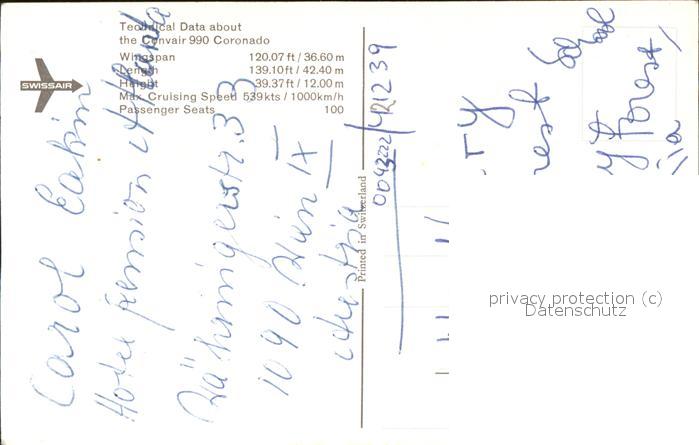 Technical Data about
the Convair 990 Coronado
Wingspan 120.07 ft / 36.60 m
Length 139.10 ft / 42.40 m
Height 39.37 ft / 12.00 m
Max. Cruising Speed 539 kts / 1000 km/h
Passenger Seats 100
SWISSAIR
Carol
Hotel pension
Währingerstr. 33
1090 Wien IX
Austria
Printed in Switzerland
/421239
TY
rest
y Forest
privacy protection (c)
Datenschutz